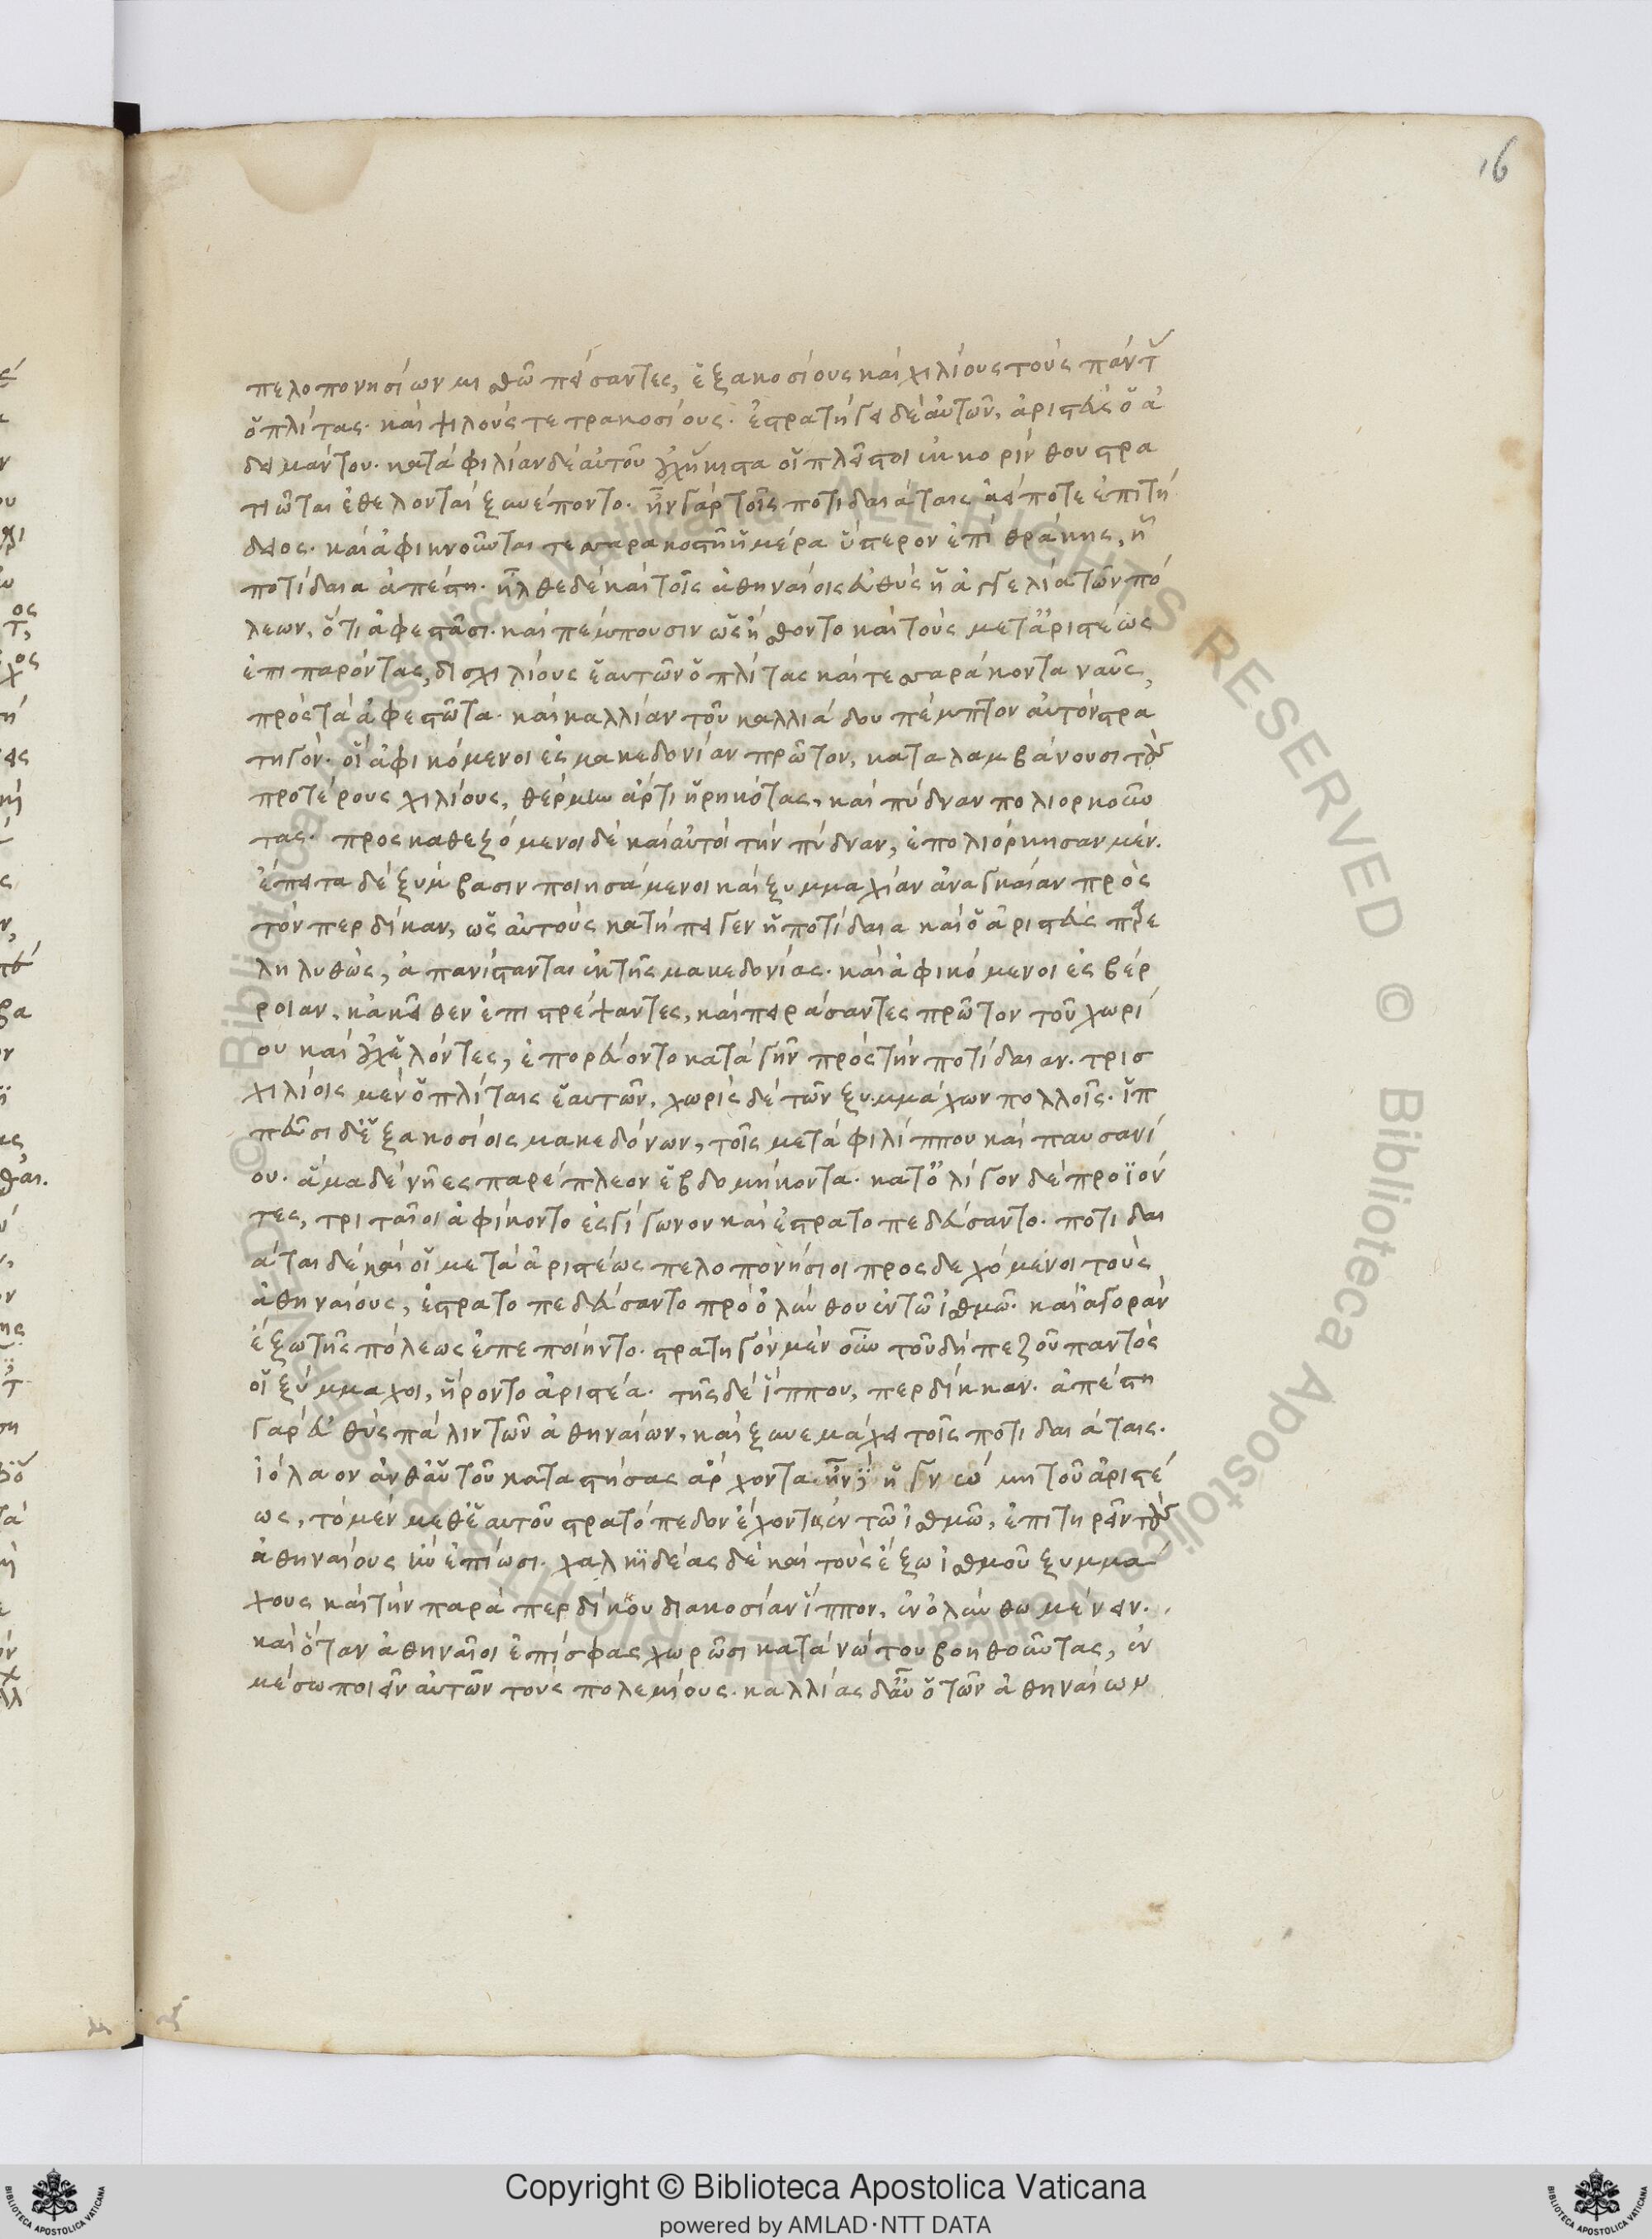 16
πελοπονησίων μισθῶ πείσαντες, ἑξακοσίους καὶ χιλίους τοὺς πάντ
ὁπλίτας· καὶ ψιλοὺς τετρακοσίους· ἐστρατήγει δὲ αὐτῶν, ἀριστεὺς ὁ ἀ
δειμάντου· κατὰ φιλίαν δὲ αὐτοῦ οὐχήκιστα οἱ πλεῖστοι ἐκ κορίνθου στρα
τιῶται ἐθελονταὶ ξυνέποντο· ἦν γὰρ τοῖς ποτιδαιάταις ἀεί ποτε ἐπιτή
δειος· καὶ ἀφικνοῦνται τεσσαρακοστῆ ἡμέρα ὕστερον ἐπὶ θράκης, ἢ
ποτίδαια ἀπέστη· ἦλθε δὲ καὶ τοῖς ἀθηναίοις εὐθὺς ἡ ἀγγελία τῶν πό
λεων, ὅτι ἀφεστᾶσι· καὶ πέμπουσιν ὡς ἤσθοντο καὶ τοὺς μετ' ἀριστέως
ἐπιπαρόντας, δισχιλίους ἑαυτῶν ὁπλίτας καὶ τεσσαράκοντα ναῦς,
πρὸς τὰ ἀφεστῶτα· καὶ καλλίαν τοῦ καλλιάδου πέμπτον αὐτὸν στρα
τηγόν· οἳ ἀφικόμενοι ἐς μακεδονίαν πρῶτον, καταλαμβάνουσι τοὺς
προτέρους χιλίους, θέρμην ἄρτι ἡρηκότας, καὶ πύδναν πολιορκοῦν
τας· προσκαθεζόμενοι δὲ καὶ αὐτοὶ τὴν πύδναν, ἐπολιόρκησαν μέν·
ἔπειτα δὲ ξύμβασιν ποιησάμενοι καὶ ξυμμαχίαν ἀναγκαίαν πρὸς
τὸν περδίκαν, ὡς αὐτοὺς κατήπειγεν ἡ ποτίδαια καὶ ὁ ἀριστεὺς παρε
ληλυθώς, ἀπανίστανται ἐκ τῆς μακεδονίας· καὶ ἀφικόμενοι ἐς βέρ
ροιαν, κἀκεῖθεν ἐπιστρέψαντες, καὶ πειράσαντες πρῶτον τοῦ χωρί
ου καὶ οὐχ ἑλόντες, ἐπορεύοντο κατὰ γῆν πρὸς τὴν ποτίδαιαν· τρισ
χιλίοις μὲν ὁπλίταις ἑαυτῶν, χωρὶς δὲ τῶν ξυμμάχων πολλοῖς· ἱπ
πεῦσι δὲ ἑξακοσίοις μακεδόνων, τοῖς μετὰ φιλίππου καὶ παυσανί
ου· ἅμα δὲ νῆες παρέπλεον ἑβδομήκοντα· κατ' ὀλίγον δὲ προϊόν
τες, τριταῖοι ἀφίκοντο ἐς γίγωνον καὶ ἐστρατοπεδεύσαντο· ποτιδαι
ᾶται δὲ καὶ οἱ μετὰ ἀριστέως πελοπονήσιοι προσδεχόμενοι τοὺς
ἀθηναίους, ἐστρατοπεδεύσαντο πρὸ ὀλύνθου ἐν τῶ ἰσθμῶ· καὶ ἀγορὰν
ἔξω τῆς πόλεως ἐπεποίηντο· στρατηγὸν μὲν οὖν τοῦ δὴ πεζοῦ παντὸς
οἱ ξύμμαχοι, ἥροντο ἀριστέα· τῆς δὲ ἵππου, περδίκκαν· ἀπέστη
γὰρ εὐθὺς πάλιν τῶν ἀθηναίων, καὶ ξυνεμάχει τοῖς ποτιδαιάταις·
ἰόλαον ἀνθ' αὑτοῦ καταστήσας ἄρχοντα· ἦν ἡ γνώμη τοῦ ἀριστέ
ως, τὸ μὲν μεθ' ἑαυτοῦ στρατόπεδον ἔχοντι ἐν τῶ ἰσθμῶ, ἐπιτηρεῖν τοὺς
ἀθηναίους ἢν ἐπίωσι· χαλκιδέας δὲ καὶ τοὺς ἔξω ἰσθμοῦ ξυμμά
χους καὶ τὴν παρὰ περδίκου διακοσίαν ἵππον, ἐν ὀλύνθω μένειν·
καὶ ὅταν ἀθηναῖοι ἐπὶ σφας χωρῶσι κατὰ νώτου βοηθοῦντας, ἐν
μέσω ποιεῖν αὐτῶν τοὺς πολεμίους· καλλίας δ' αὖ ὁ τῶν ἀθηναίων
© Biblioteca Apostolica Vaticana ALL RIGHTS RESERVED © Biblioteca Apostolica Vaticana ALL RIGHTS RESERVED
Copyright © Biblioteca Apostolica Vaticana
powered by AMLAD·NTT DATA
BIBLIOTECA APOSTOLICA VATICANA
BIBLIOTECA APOSTOLICA VATICANA